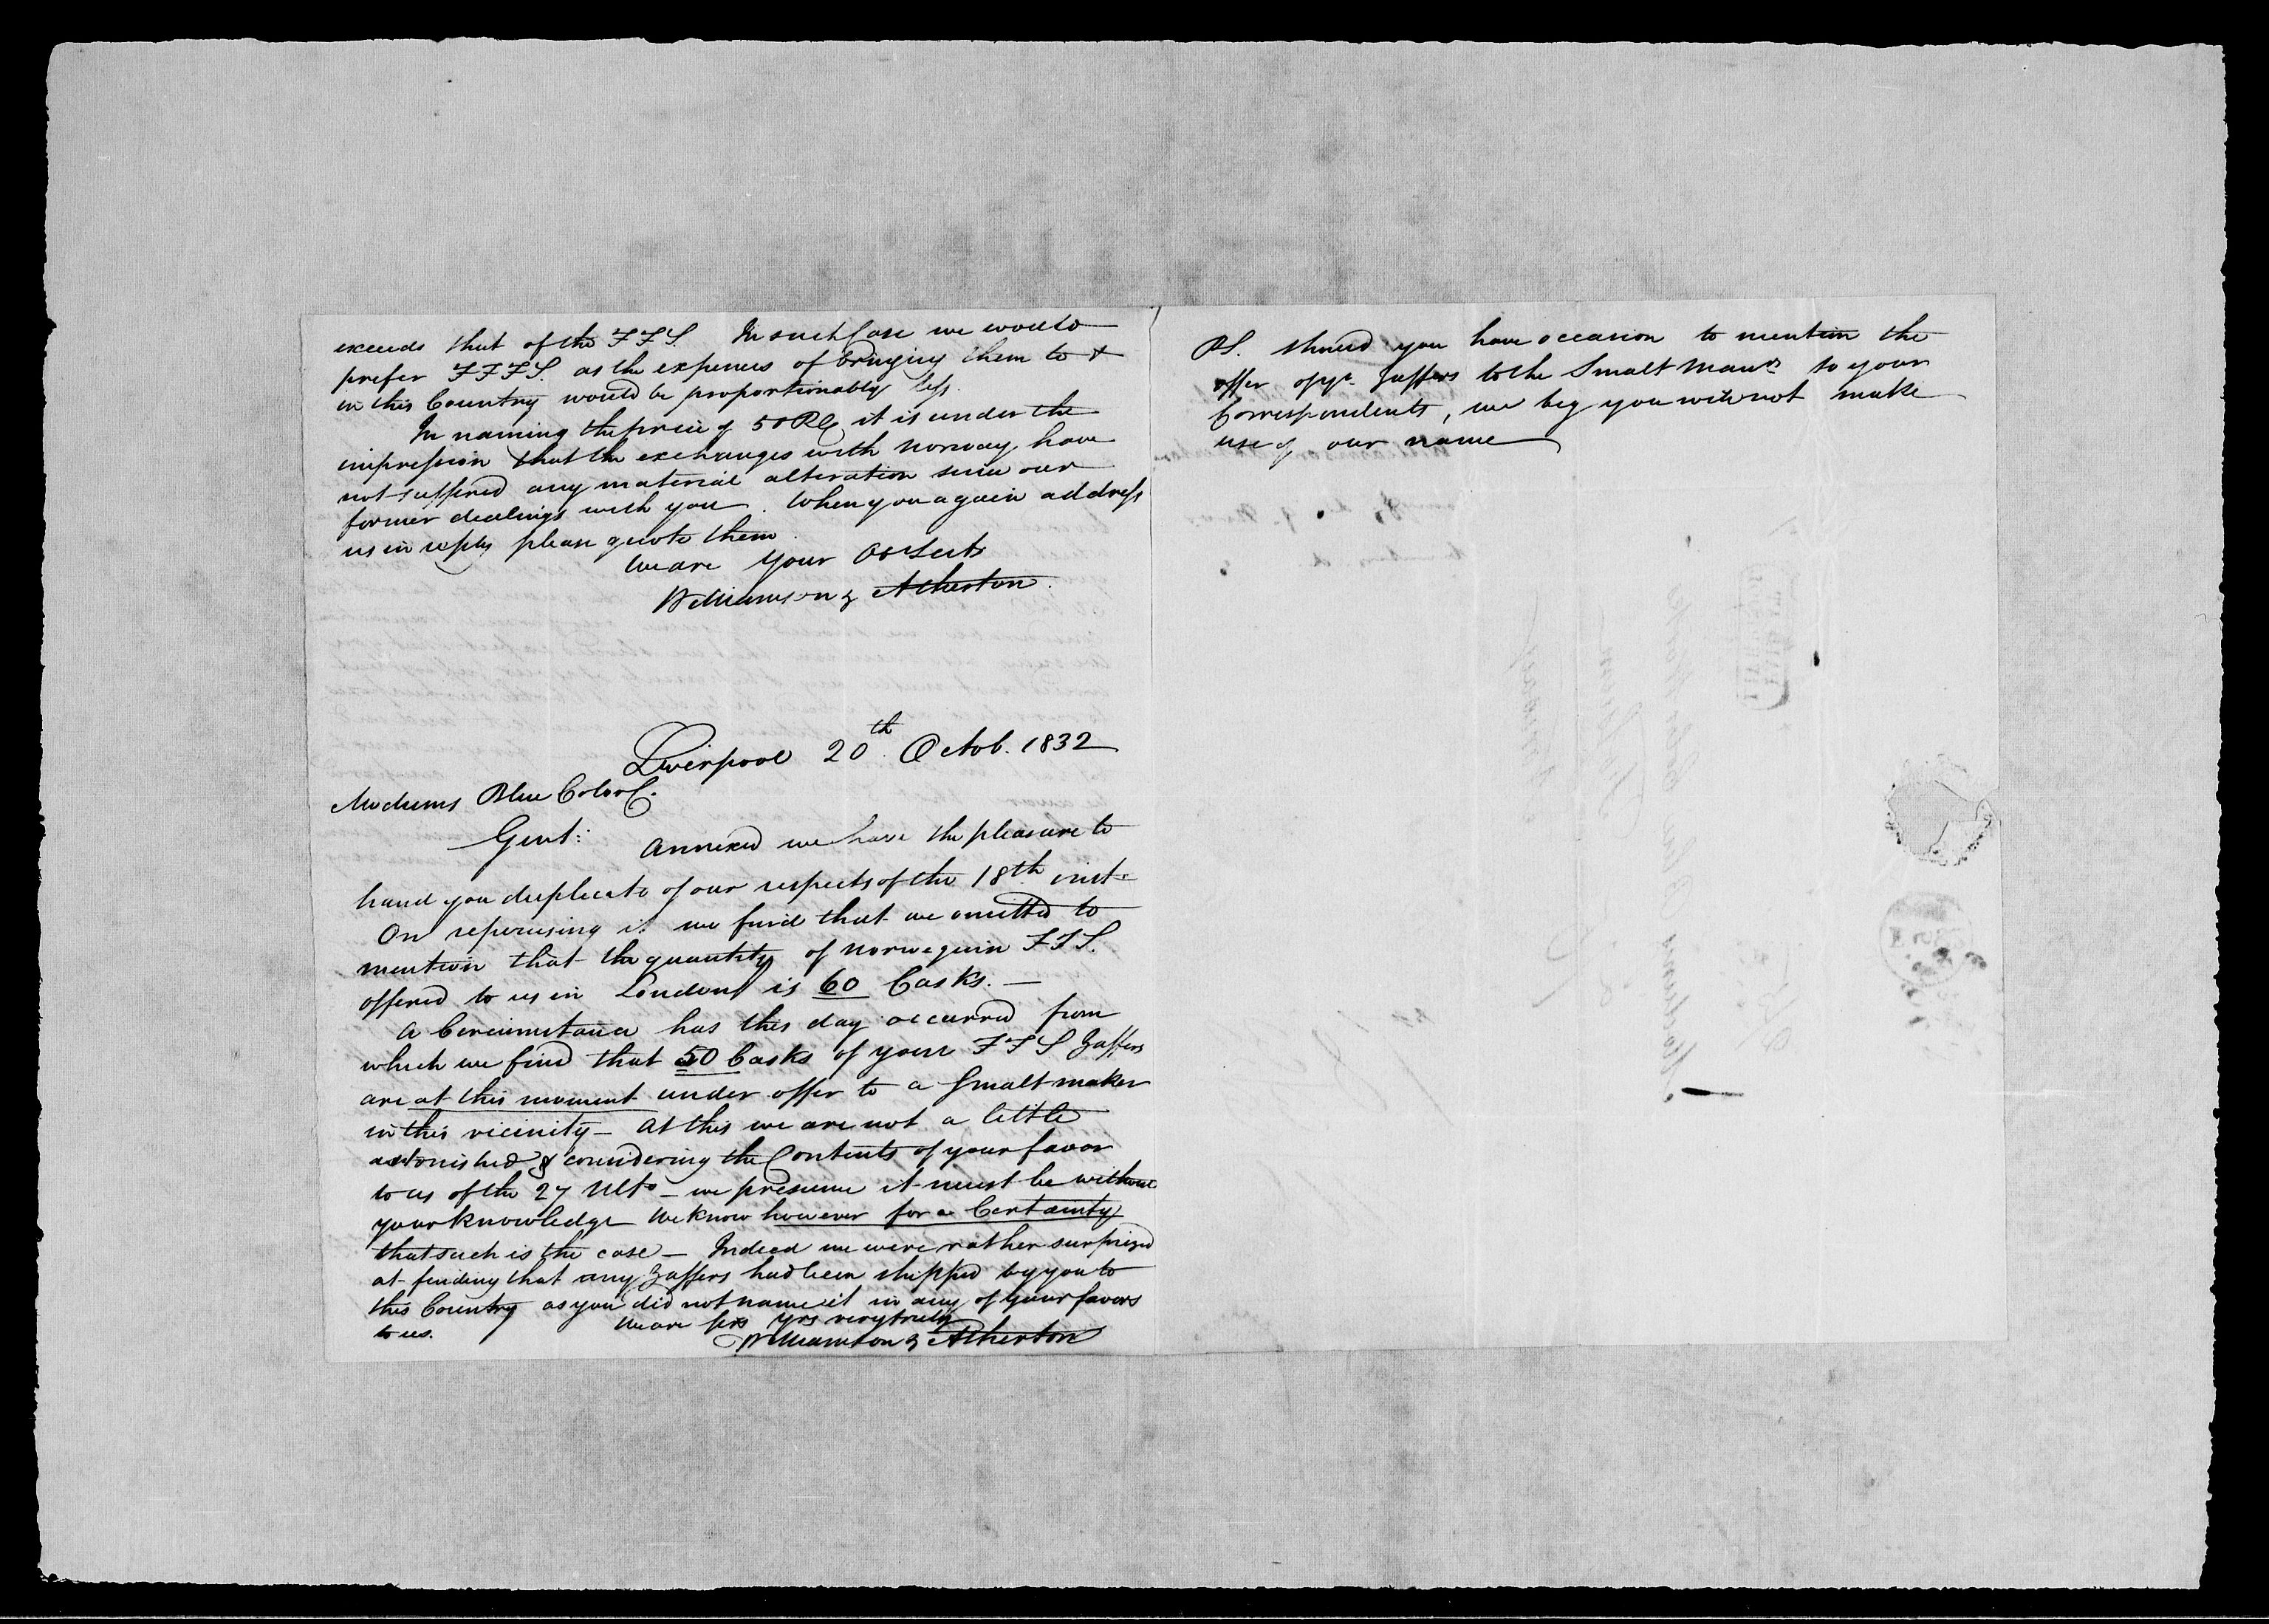 exceeds that of the FFS. In such Case we would
prefer FFFS. as the expenses of bringing them to &
in this Country would be proportionably less.
In naming the price of 50 it is under the
impression that the exchanges with Norway have
not suffered any material alteration since our
former dealings with you. When you again address
us in reply please quote them.
We are Your Ob Serts
Williamson & Atherton.
Liverpool 20th Octob. 1832
Modums Blue Color C.
Gent: Annexed we have the pleasure to
hand you duplicate of our respects of the 18th inst.
On reperusing it we find that we omitted to
mention that the quantity of Norwegian FFS.
offered to us in London is 60 Casks. —
A Circumstance has this day occurred from
which we find that 50 Casks of your FFS Zaffers
are at this moment under offer to a Smalt maker
in this vicinity — At this we are not a little
astonished & considering the Contents of your favor
to us of the 27 Ulto — we presume it must be without
your knowledge We know however for a Certainty
that such is the case — Indeed we were rather surprized
at finding that any Zaffers had been shipped by you to
this Country as you did not name it in any of your favors
to us. We are yrs very truly
Williamson & Atherton
PS. Should you have occasion to mention the
offer of yr. Zaffers to the Smalt Manrs to your
Correspondents, we beg you will not make
use of our name